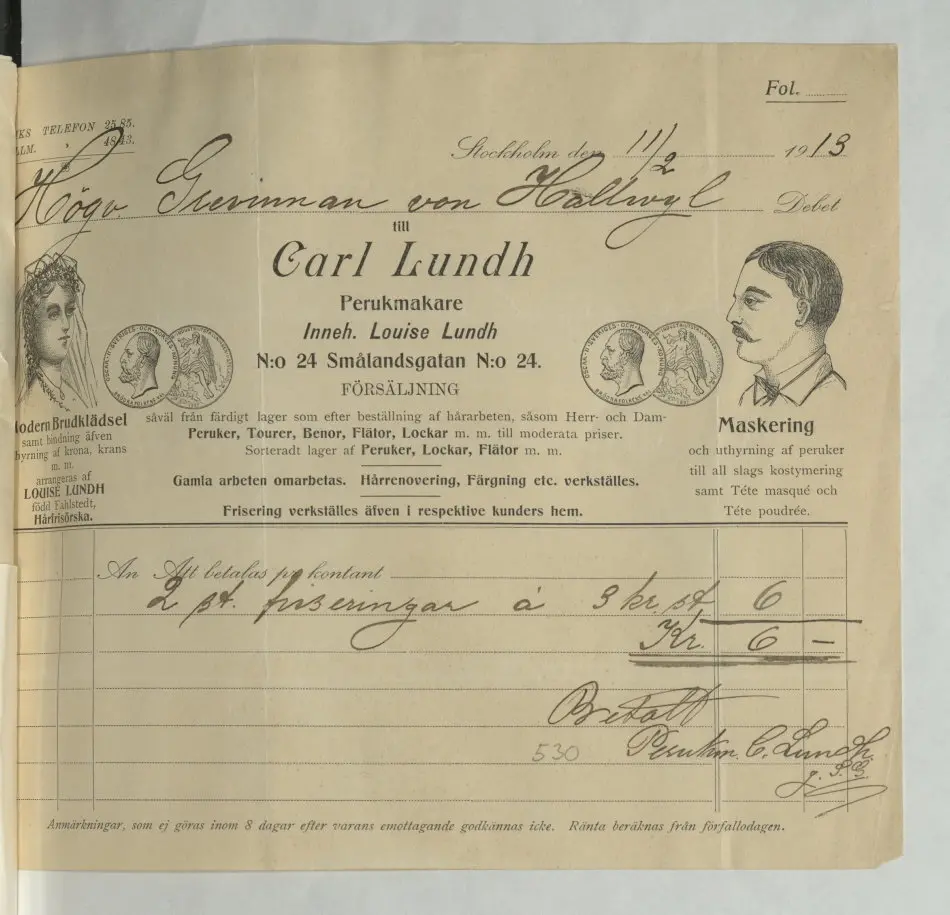 Fol.
KS TELEFON 25 85.
LLM. " 48 43.
Stockholm den 11/2 1913
Högv. Grevinnan von Hallwyl Debet
till
Carl Lundh
Perukmakare
Inneh. Louise Lundh
N:o 24 Smålandsgatan N:o 24.
FÖRSÄLJNING
såväl från färdigt lager som efter beställning af hårarbeten, såsom Herr- och Dam-
Peruker, Tourer, Benor, Flätor, Lockar m. m. till moderata priser.
Sorteradt lager af Peruker, Lockar, Flätor m. m.
Gamla arbeten omarbetas. Hårrenovering, Färgning etc. verkställes.
Frisering verkställes äfven i respektive kunders hem.
odern Brudklädsel
samt bindning äfven
hyrning af krona, krans
m. m.
arrangeras af
LOUISE LUNDH
född Fahlstedt,
Hårfrisörska.
Maskering
och uthyrning af peruker
till all slags kostymering
samt Téte masqué och
Téte poudrée.
An Att betalas pr kontant
2 st. friseringar à 3 kr. st 6
Kr. 6 –
Betalt
530 Perukm. C. Lundh.
Anmärkningar, som ej göras inom 8 dagar efter varans emottagande godkännas icke. Ränta beräknas från förfallodagen.